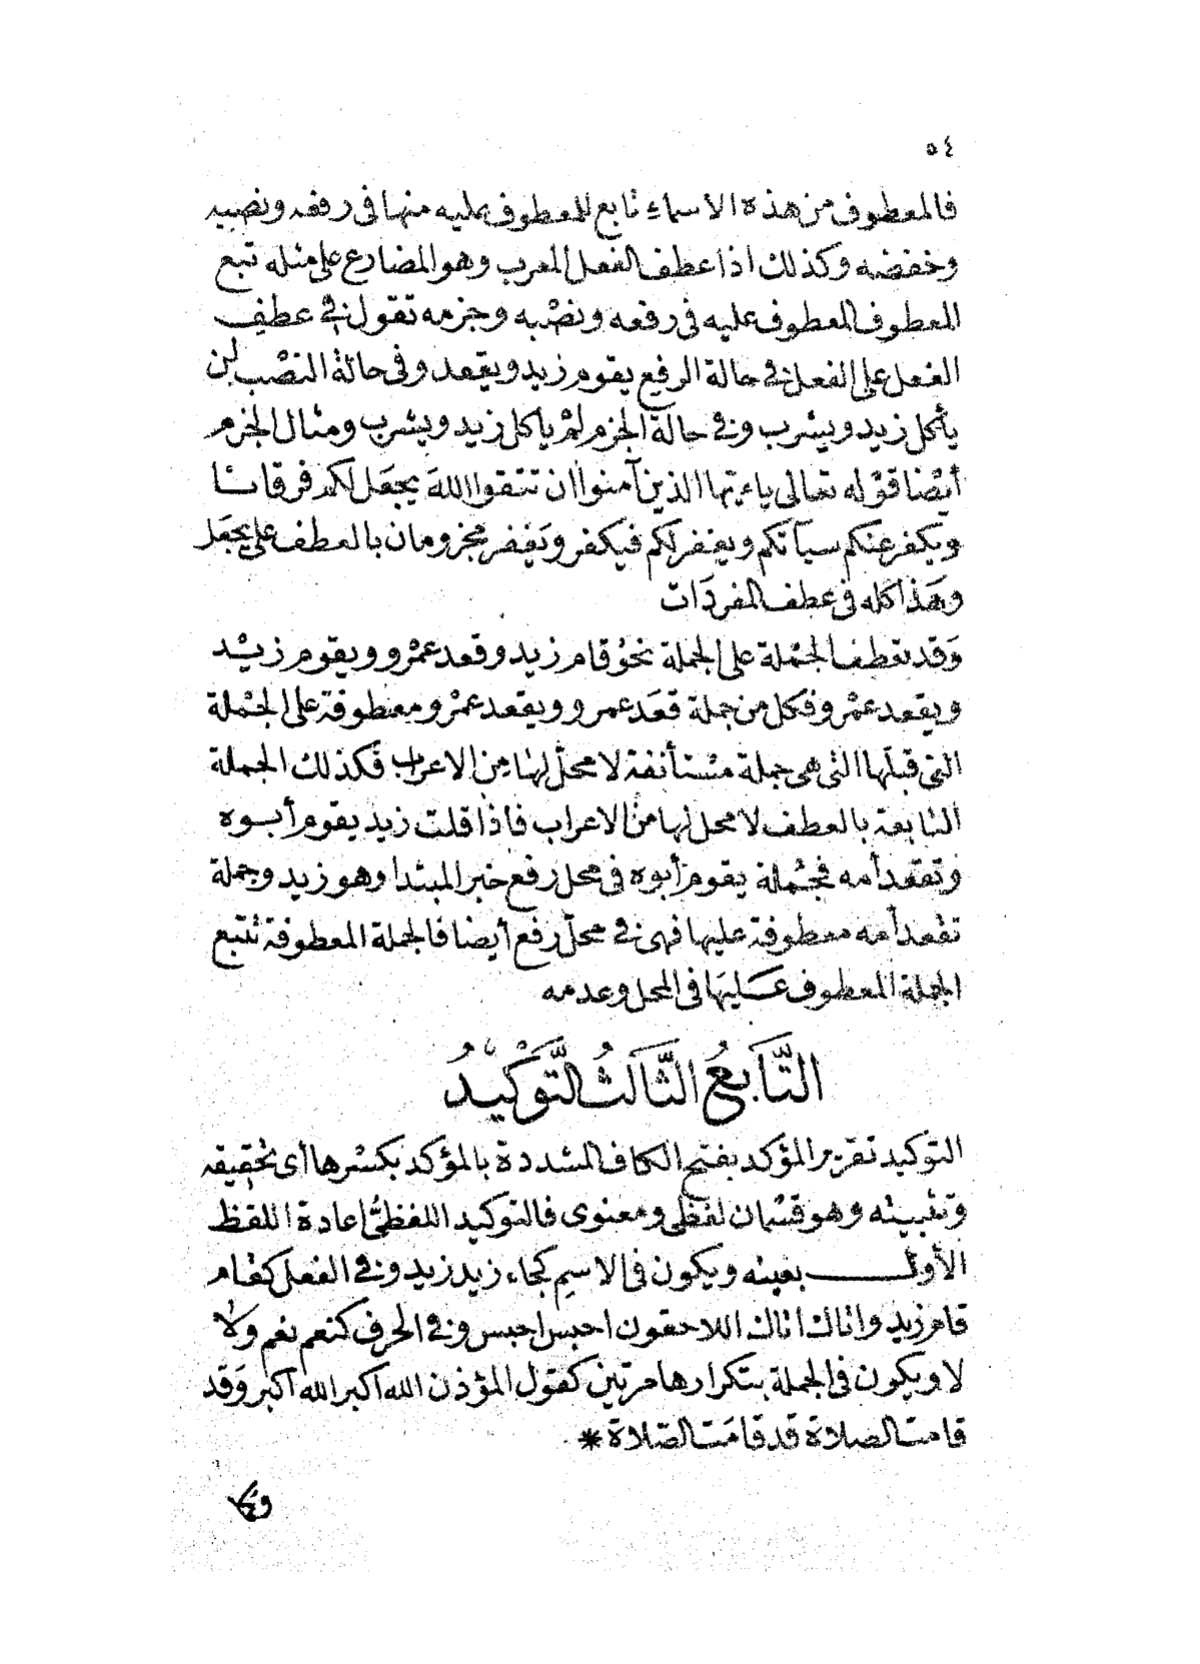 ٥٤
فالمعطوف من هذه الاسماء تابع للمعطوف عليه منها فى رفعه ونصبه
وخفضه وكذلك اذا عطف الفعل المعرب وهو المضارع على مثله تبع
المعطوف المعطوف عليه فى رفعه ونصْبه وجزمه تقول فى عطف
الفعل على الفعل فى حالة الرفع يقوم زيد ويقعد وفى حالة النصْب لن
يأكل زيد ويشرب وفى حالة الجزم لمْ يأكل زيد ويشرب ومثال الجزم
أيْضا قوْله تعالى ياءيها الذين آمنوا ان تتقوا اللهَ يجعَل لكم فرقانا
ويكفر عنكم سيآتكم ويغفر لكم فيكفر ويَغفر مجزومان بالعطف على يجعَل
وهَذا كله فى عطف المفردَات
وَقد تعطف الجمْلة على الجملة نحوُ قام زيد وقعد عمْرو ويقوم زيْد
ويقعد عمْرو فكل من جملة قعَد عمرو ويقعد عمْرو معطوفة على الجمْلة
التى قبلَها التى هى جملة مسْتأنفة لا محلّ لهَا مِن الاعراب فكذلك الجملة
التابعة بالعطف لا محل لها من الاعراب فاذا قلت زيد يقوم أبوه
وتقعد أمه فجمْلة يقوم أبوه فى محل رفع خبر المبتدا وهو زيد وجملة
تقعد أمه معطوفة عليها فهى فى محلّ رفع أيضا فالجملة المعطوفة تتبع
الجملة المعطوف عَليهَا فى المحل وعدمه
التَّابعُ الثَّالثُ التَّوْكيدُ
التوكيد تقرير المؤكد بفتح الكاف المشددة بالمؤكد بكسْرها أى تحقيقه
وتثبيته وهو قسْمان لفظى ومعنوى فالتوكيد اللفظىُّ إعادة اللفظ
الأول بعينه ويكون فى الاسمِ كجاء زيد زيد وفى الفعل كقام
قام زيد واتاك اتاك اللاحقون احبس احبس وفى الحرف كنعم نعم ولا
لا ويكون فى الجملة بتكرارها مرتين كقول المؤذن الله اكبر الله اكبر وَقد
قامت الصلاة قد قامَت الصّلاة *